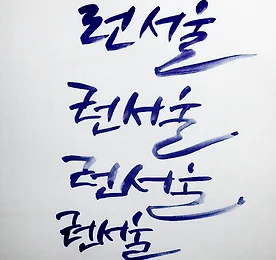 런서울
런서울
런서울
런서울